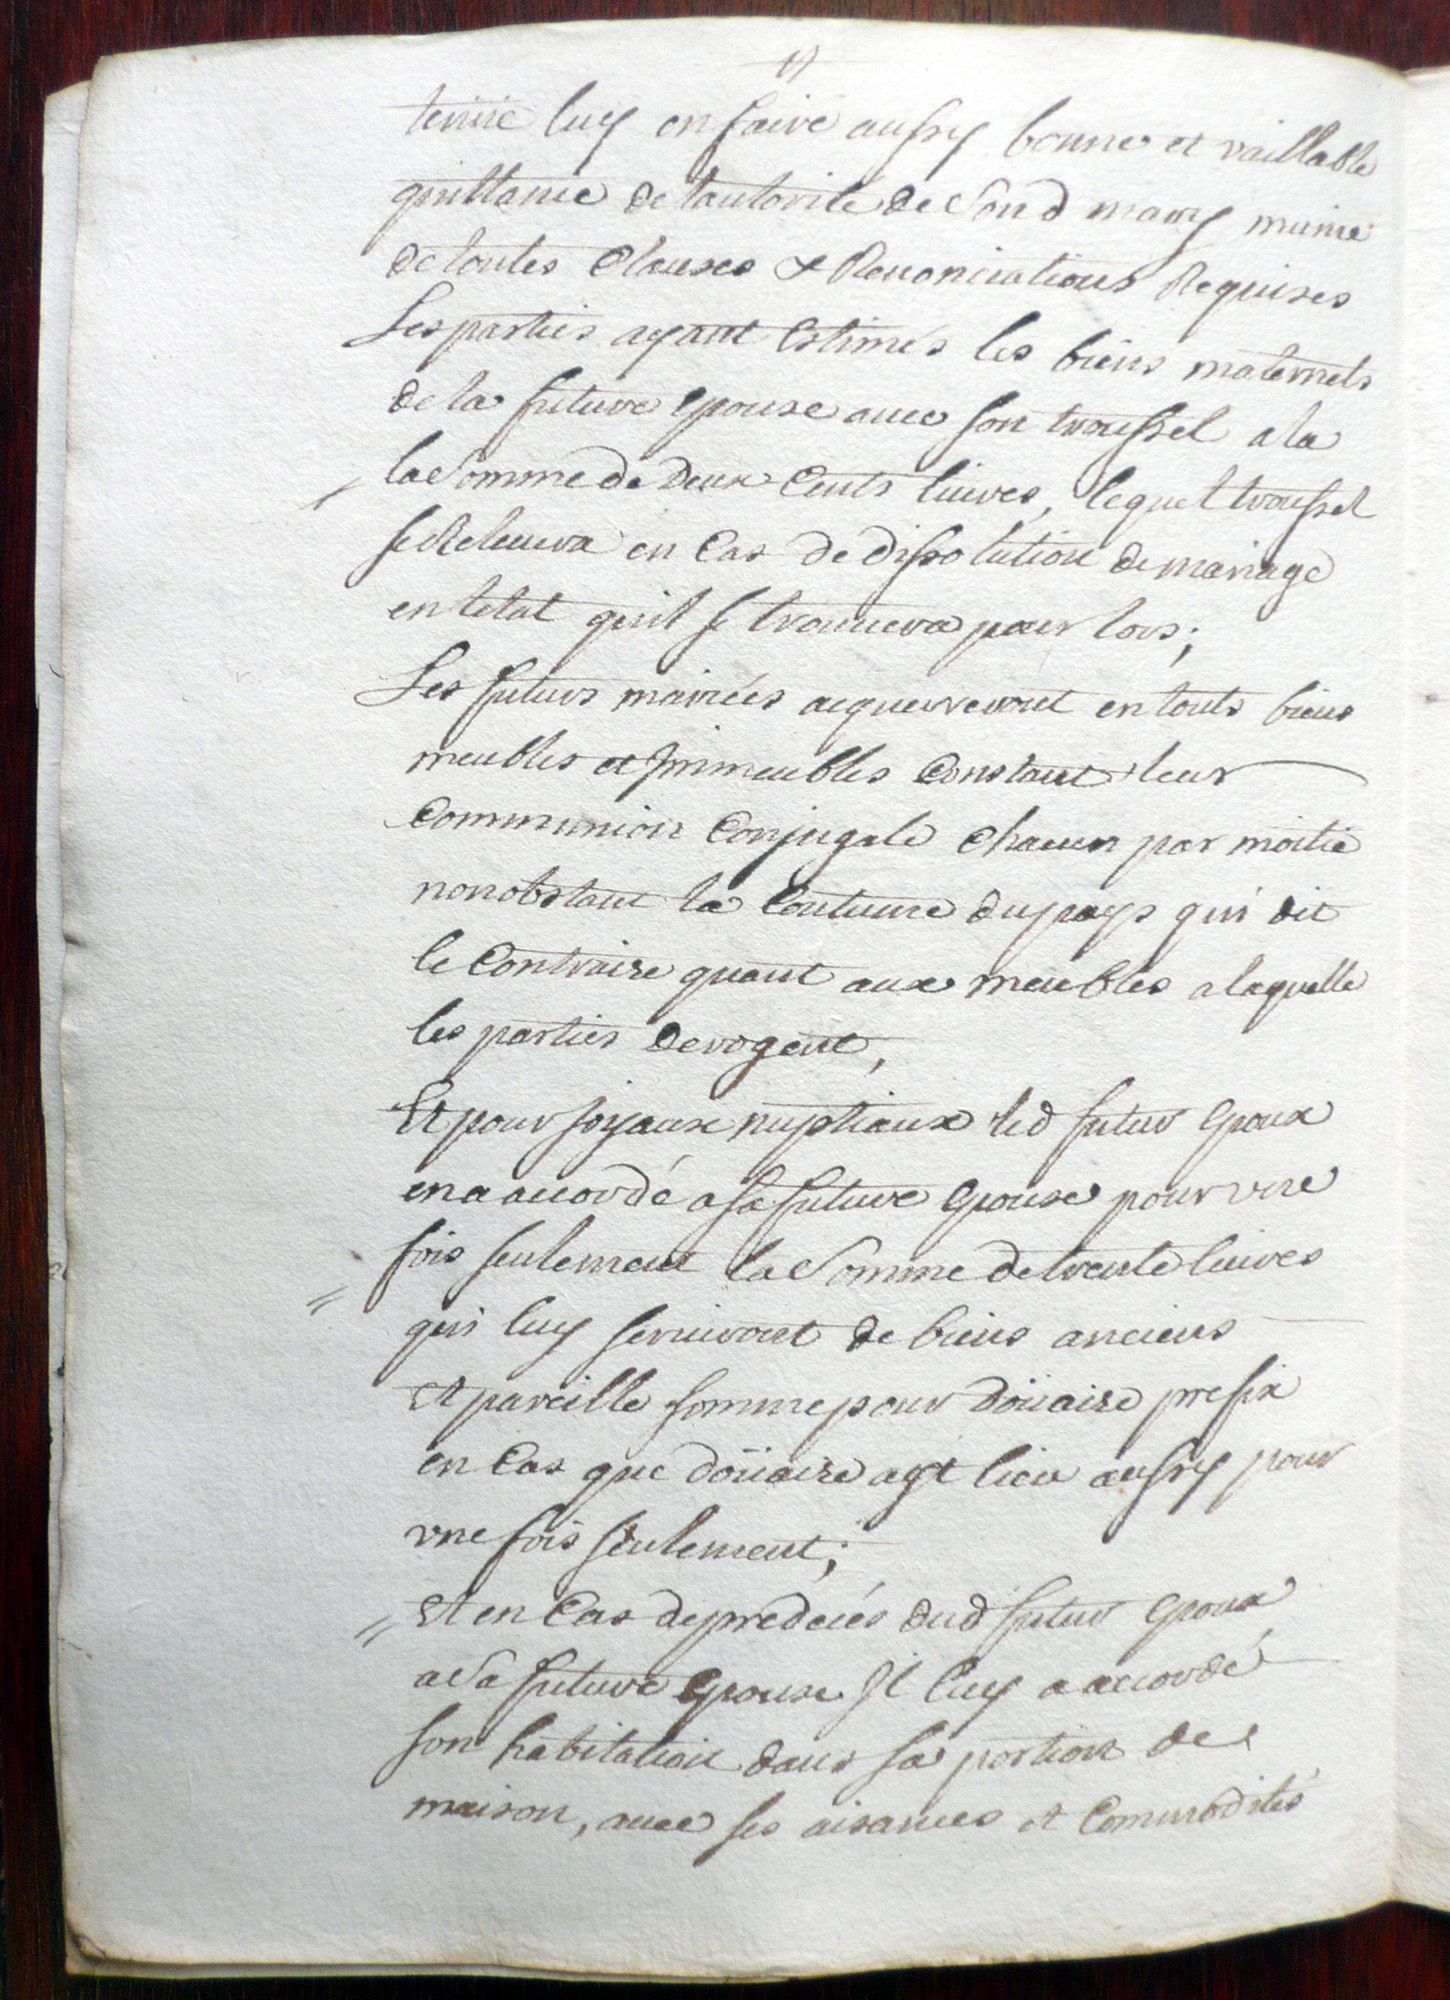 tenüe luy en faire aussy bonne et vaillable
quittance de l'autorité de Son d mary munie
de toutes Clauses & Renonciations Requises
Les parties ayant Estimés les biens maternels
de la future Epouse auec son troussel a la
la Somme de Deux Cents liures, lequel troussel
se Releuera en Cas de dissolution de mariage
en letat quil se trouuera pour lors;
Les futurs mariées acquerreront en touts biens
meubles et Jmmeubles Constant leur
Communion Conjugale Chacun par moitié
nonobstant la Coutume du pays qui dit
le Contraire quant aux meubles a laquelle
les parties Derogent,
Et pour Joyaux nuptiaux led futur Epoux
en a accordé a sa future Epouse pour vne
fois seulement la Somme de trente liures
qui luy seruiront de biens anciens
Et pareille somme pour Doüaire prefix
en Cas que doüaire ayt lieu aussy pour
vne fois seulement;
Et en Cas de predecés dud futur Epoux
a Sa future Epouse Jl luy a accordé
son habitation dans sa portion de
maison, auec ses aisances et Commodités